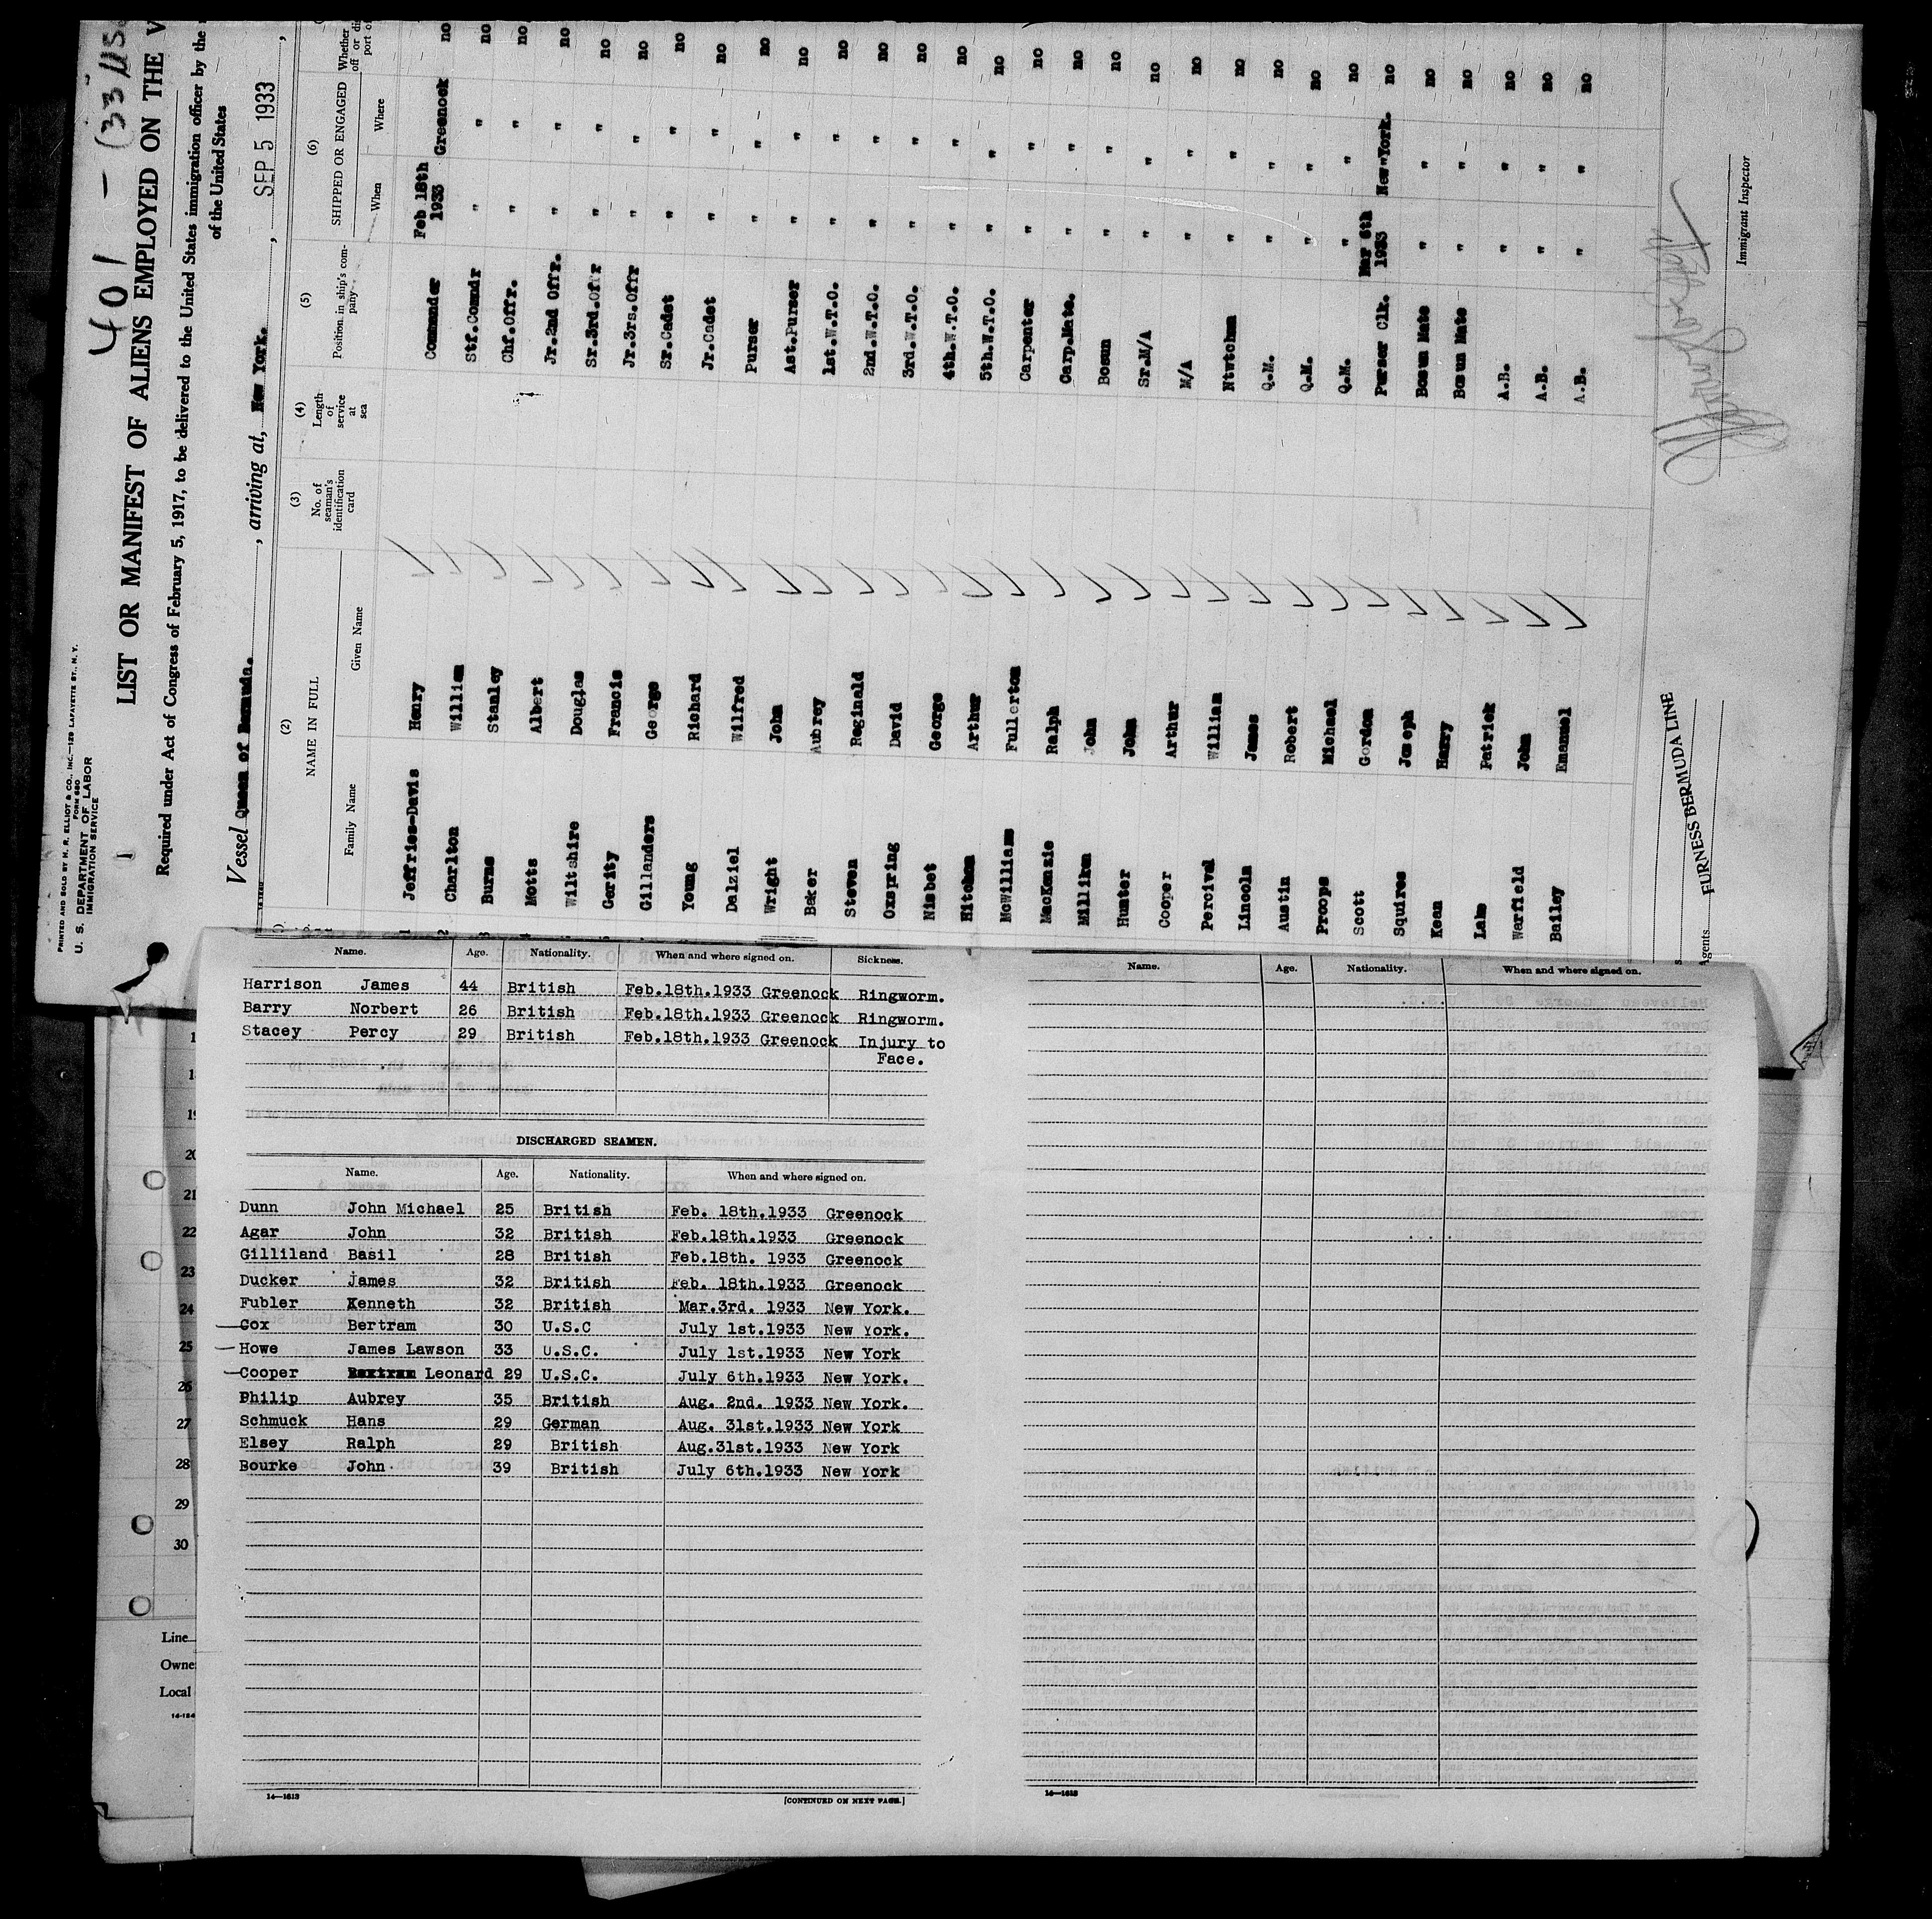 401 - (33
PRINTED AND SOLD BY M. R. ELLIOT & CO., INC.—129 LAFAYETTE ST., N. Y.
FORM 680
U. S. DEPARTMENT OF LABOR
IMMIGRATION SERVICE
1
LIST OR MANIFEST OF ALIENS EMPLOYED ON THE V
Required under Act of Congress of February 5, 1917, to be delivered to the United States immigration officer by the
of the United States
Vessel Queen of Bermuda. , arriving at, New York. , SEP 5 1933 ,
(2) NAME IN FULL (3) No. of seaman's identification card (4) Length of service at sea (5) Position in ship's company (6) SHIPPED OR ENGAGED Whether
Family Name Given Name When Where
1 Jeffries-Davis Henry Commander Feb 18th 1933 Greenock no
2 Charlton William Stf.Comndr " " no
3 Burns Stanley Chf.Offr. " " no
4 Motts Albert Jr.2nd Offr. " " no
5 Wiltshire Douglas Sr.3rd.Offr " " no
Gerity Francis Jr.3rs.Offr " " no
Gillanders George Sr.Cadet " " no
Young Richard Jr.Cadet " " no
Dalziel Wilfred Purser " " no
Wright John Ast.Purser " " no
Baker Aubrey 1st.W.T.O. " " no
Steven Reginald 2nd.W.T.O. " " no
Oxspring David 3rd.W.T.O. " " no
Nisbet George 4th.W.T.O. " " no
Hitchen Arthur 5th.W.T.O. " " no
McWilliams Fullerton Carpenter " " no
MacKenzie Ralph Carp.Mate. " " no
Milliken John Bosun " " no
Hunter John Sr.M/A " " no
Cooper Arthur M/A " " no
Percival William Ntwtchmn " " no
Lincoln James Q.M. " " no
Austin Robert Q.M. " " no
Proops Michael Q.M. " " no
Scott Gordon Purser Clk. Mar 6th 1933 New York. no
Squires Joseph Bosun Mate " " no
Kean Harry Bosun Mate " " no
Lake Patrick A.B. " " no
Warfield John A.B. " " no
Bailey Emanuel A.B. " " no
Agents FURNESS BERMUDA LINE
Immigrant Inspector
Name. Age. Nationality. When and where signed on. Sickness.
Harrison James 44 British Feb.18th.1933 Greenock Ringworm.
Barry Norbert 26 British Feb.18th.1933 Greenock Ringworm.
Stacey Percy 29 British Feb.18th.1933 Greenock Injury to
Face.
DISCHARGED SEAMEN.
Name. Age. Nationality. When and where signed on.
Dunn John Michael 25 British Feb. 18th.1933 Greenock
Agar John 32 British Feb.18th.1933 Greenock
Gilliland Basil 28 British Feb.18th. 1933 Greenock
Ducker James 32 British Feb. 18th.1933 Greenock
Fubler Kenneth 32 British Mar.3rd. 1933 New York.
Cox Bertram 30 U.S.C July 1st.1933 New York.
Howe James Lawson 33 U.S.C. July 1st.1933 New York
Cooper Leonard 29 U.S.C. July 6th.1933 New York.
Philip Aubrey 35 British Aug. 2nd. 1933 New York.
Schmuck Hans 29 German Aug. 31st.1933 New York
Elsey Ralph 29 British Aug.31st.1933 New York
Bourke John 39 British July 6th.1933 New York
14—1613
[CONTINUED ON NEXT PAGE.]
Name. Age. Nationality. When and where signed on.
14—1613
20
21
22
23
24
25
26
27
28
29
30
Line
Owne
Local